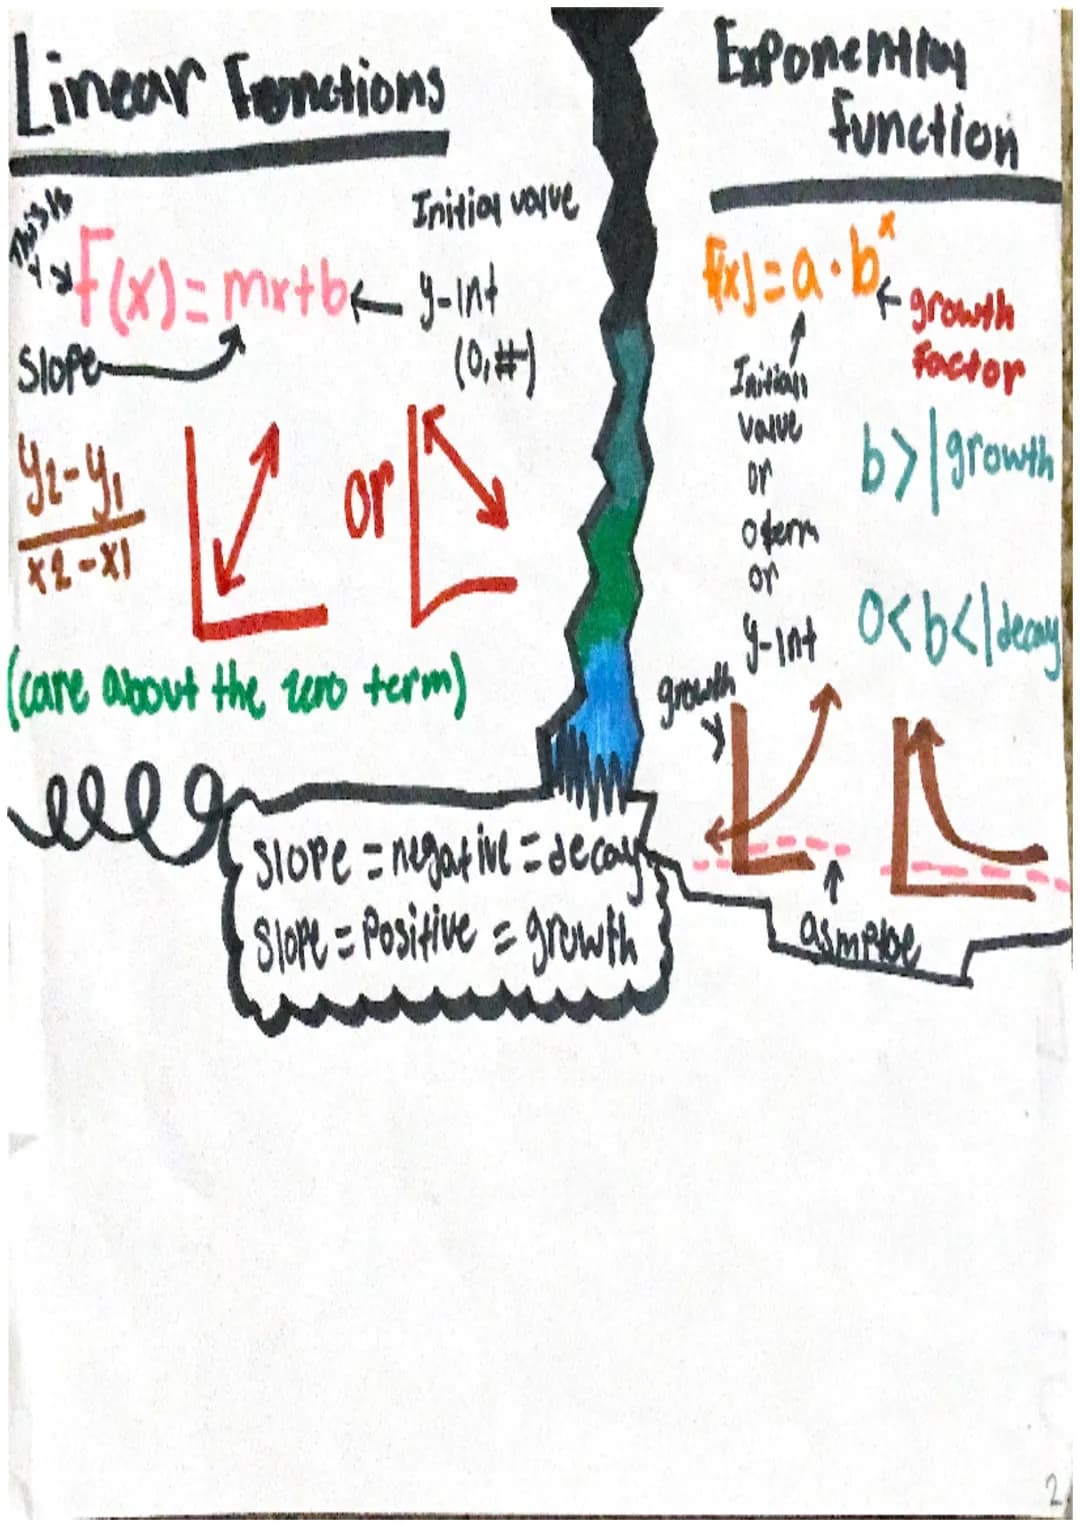 Linear Functions
This is
y
F(x) = mx+b
Initial value
y-int
(0,#)
Slope
y2-y1
x2-x1
or
(care about the zero term)
Exponential
function
f(x) = a·b^x
growth
factor
Initial
value
or
0 term
or
y-int
b>1 growth
0<b<1 decay
growth
asmptoe
Slope = negative = decay
Slope = Positive = growth
2